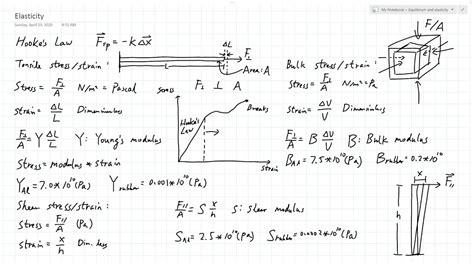 Elasticity
Sunday, April 19, 2020 8:51 AM
My Notebook - Equilibrium and elasticity
Hooke's Law F⃗sp = -kΔx⃗
ΔL
L
F⊥
Area: A
F/A
Tensile stress/strain:
Stress = F⊥/A N/m² = Pascal
F⊥ ⊥ A
Strain = ΔL/L Dimensionless
F⊥/A = Y ΔL/L Y: Young's modulus
Stress = modulus * strain
Y_Al = 7.0*10¹⁰(Pa) Y_rubber = 0.001*10¹⁰(Pa)
stress
Hooke's Law
Breaks
strain
Bulk stress/strain:
Stress = F⊥/A N/m² = Pa
Strain = ΔV/V Dimensionless
F⊥/A = B ΔV/V B: Bulk modulus
B_Al = 7.5*10¹⁰(Pa) B_rubber = 0.2*10¹⁰
Shear stress/strain:
Stress = F∥/A (Pa)
strain = x/h Dim. less
F∥/A = S x/h S: shear modulus
S_Al = 2.5*10¹⁰(Pa) S_rubber = 0.0002*10¹⁰(Pa)
x
F⃗∥
h